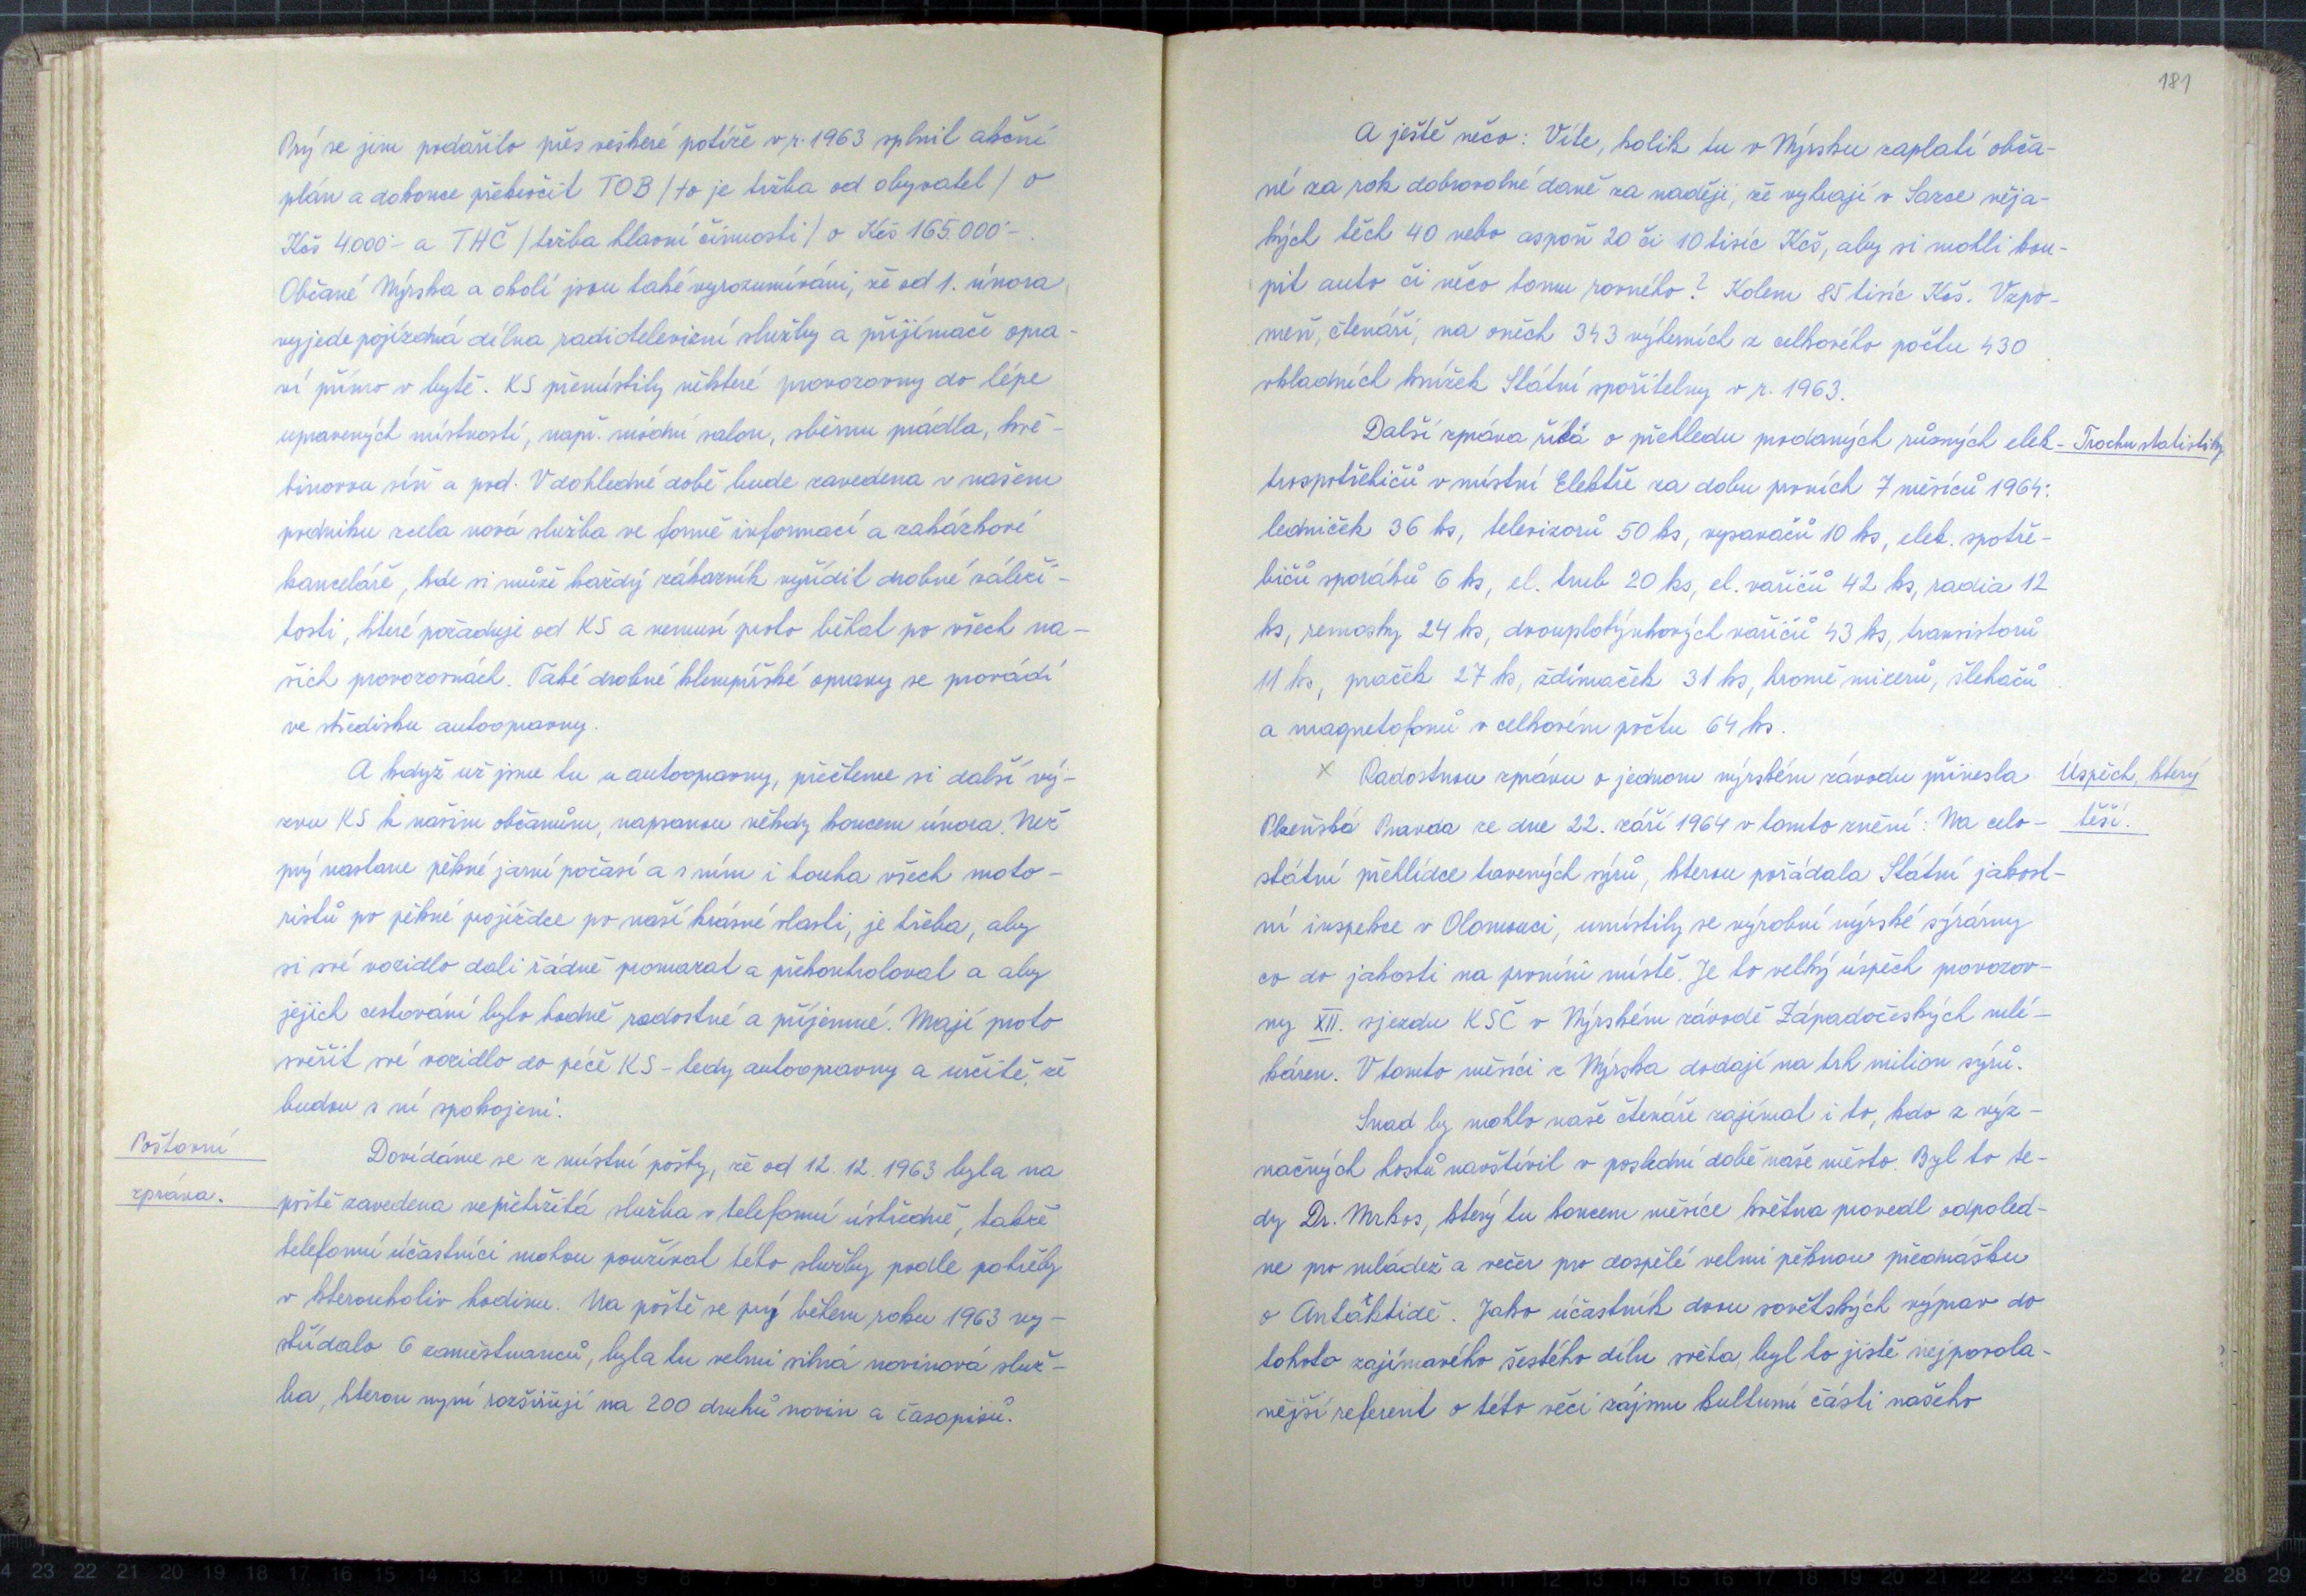 Prý se jim podařilo přes veškeré potíže v r. 1963 splnit akční
plán a dokonce překročit TOB /to je tržba od obyvatel/ o
Kčs 4.000·- a THČ /tržba hlavní činnosti/ o Kčs 165.000·-.
Občané Nýrska a okolí jsou také vyrozumíváni, že od 1. února
vyjede pojízdná dílna radiotelevizní služby a přijímače opra-
ví přímo v bytě. KS přemístily některé provozovny do lépe
upravených místností, např. módní salon, sběrnu prádla, kvě-
tinovou síň a pod. V dohledné době bude zavedena v našem
podniku zcela nová služba ve formě informací a zakázkové
kanceláře, kde si může každý zákazník vyřídit drobné záleži-
tosti, které požaduje od KS a nemusí proto běhat po všech na-
šich provozovnách. Také drobné klempířské opravy se provádí
ve středisku autoopravny.
A když už jsme tu u autoopravny, přečteme si další vý-
zvu KS k našim občanům, napsanou někdy koncem února. Než
prý nastane pěkné jarní počasí a s ním i touha všech moto-
ristů po pěkné projížďce po naší krásné vlasti, je třeba, aby
si své vozidlo dali řádně promazat a překontrolovat a aby
jejich cestování bylo hodně radostné a příjemné. Mají proto
svěřit své vozidlo do péče KS - tedy autoopravny a určitě, že
budou s ní spokojeni.
Poštovní
zpráva.
Dovídáme se z místní pošty, že od 12. 12. 1963 byla na
poště zavedena nepřetržitá služba v telefonní ústředně, takže
telefonní účastníci mohou používat této služby podle potřeby
v kteroukoliv hodinu. Na poště se prý během roku 1963 vy-
střídalo 6 zaměstnanců, byla tu velmi silná novinová služ-
ba, kterou nyní rozšiřují na 200 druhů novin a časopisů.
181
A ještě něco: Víte, kolik tu v Nýrsku zaplatí obča-
né za rok dobrovolné daně za naději, že vyhrají v Sazce něja-
kých těch 40 nebo aspoň 20 či 10 tisíc Kčs, aby si mohli kou-
pit auto či něco tomu rovného? Kolem 85 tisíc Kčs. Vzpo-
meň, čtenáři, na oněch 343 výherních z celkového počtu 430
vkladních knížek Státní spořitelny v r. 1963.
Trochu statistiky
Další zpráva říká o přehledu prodaných různých elek-
trospotřebičů v místní Elektře za dobu prvních 7 měsíců 1964:
ledniček 36 ks, televizorů 50 ks, vysavačů 10 ks, elek. spotře-
bičů sporáků 6 ks, el. trub 20 ks, el. vařičů 42 ks, radia 12
ks, remosky 24 ks, dvouplotýnkových vařičů 43 ks, transistorů
11 ks, praček 27 ks, ždímaček 31 ks, kromě mixerů, šlehačů
a magnetofonů v celkovém počtu 64 ks.
Úspěch, který
těší.
x Radostnou zprávu o jednom nýrském závodu přinesla
Plzeňská Pravda ze dne 22. září 1964 v tomto znění: Na celo-
státní přehlídce tavených sýrů, kterou pořádala Státní jakost-
ní inspekce v Olomouci, umístily se výrobní nýrské sýrárny
co do jakosti na prvním místě. Je to velký úspěch provozov-
ny XII. sjezdu KSČ v Nýrském závodě Západočeských mlé-
káren. V tomto měsíci z Nýrska dodají na trh milion sýrů.
Snad by mohlo naše čtenáře zajímat i to, kdo z výz-
načných hostů navštívil v poslední době naše město. Byl to te-
dy Dr. Mrkos, který tu koncem měsíce května provedl odpoled-
ne pro mládež a večer pro dospělé velmi pěknou přednášku
o Antarktidě. Jako účastník dvou sovětských výprav do
tohoto zajímavého šestého dílu světa, byl to jistě nejpovola-
nější referent o této věci zájmu kulturní části našeho